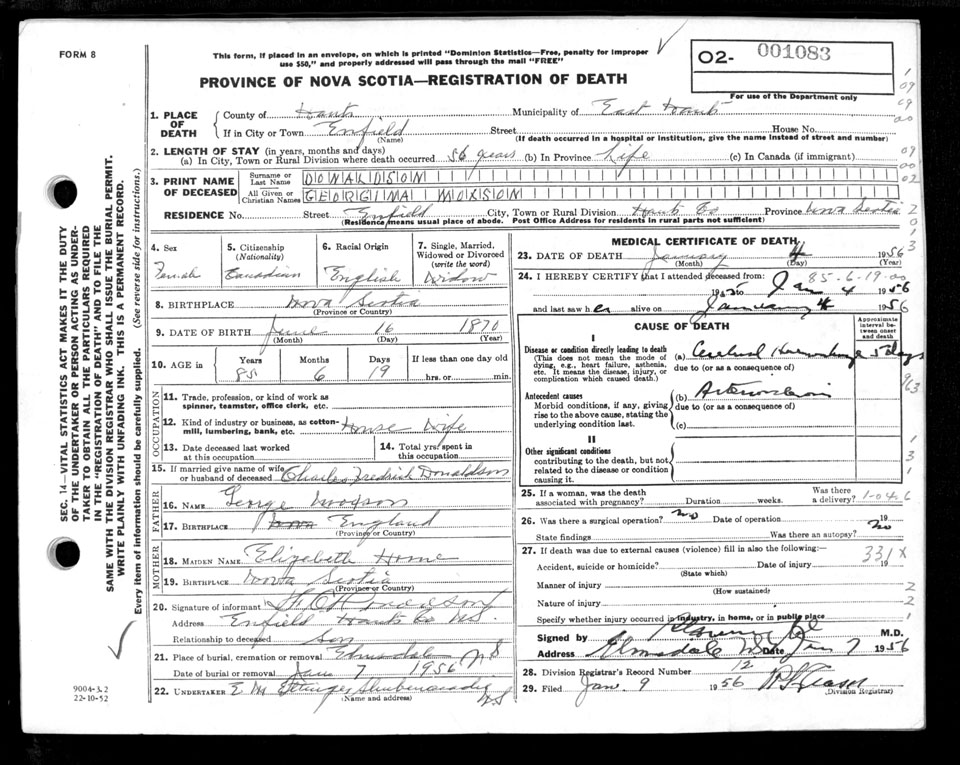 FORM 8
This form, if placed in an envelope, on which is printed "Dominion Statistics—Free, penalty for improper
use $50," and properly addressed will pass through the mail "FREE"
O2- 001083
For use of the Department only
PROVINCE OF NOVA SCOTIA—REGISTRATION OF DEATH
1. PLACE OF DEATH County of Hants Municipality of East Hants
If in City or Town Enfield Street House No.
(Name) (If death occurred in a hospital or institution, give the name instead of street and number)
2. LENGTH OF STAY (in years, months and days)
(a) In City, Town or Rural Division where death occurred 56 years (b) In Province Life (c) In Canada (if immigrant)
3. PRINT NAME OF DECEASED Surname or Last Name DONALDSON
All Given or Christian Names GEORGINA MOXSON
RESIDENCE No. Street Enfield City, Town or Rural Division Hants Co Province Nova Scotia
(Residence means usual place of abode. Post Office Address for residents in rural parts not sufficient)
4. Sex Female
5. Citizenship (Nationality) Canadian
6. Racial Origin English
7. Single, Married, Widowed or Divorced (write the word) Widow
8. BIRTHPLACE Nova Scotia
(Province or Country)
9. DATE OF BIRTH June 16 1870
(Month) (Day) (Year)
10. AGE in Years 85 Months 6 Days 19 If less than one day old hrs. or min.
OCCUPATION
11. Trade, profession, or kind of work as spinner, teamster, office clerk, etc.
12. Kind of industry or business, as cotton-mill, lumbering, bank, etc. House Wife
13. Date deceased last worked at this occupation
14. Total yrs. spent in this occupation
15. If married give name of wife or husband of deceased Charles Fredrick Donaldson
FATHER
16. NAME George Moxson
17. BIRTHPLACE Nova England
(Province or Country)
MOTHER
18. MAIDEN NAME Elizabeth Horne
19. BIRTHPLACE Nova Scotia
(Province or Country)
20. Signature of informant
Address Enfield Hants Co N.S.
Relationship to deceased Son
21. Place of burial, cremation or removal Elmsdale N S
Date of burial or removal Jan 7 1956
22. UNDERTAKER E M Ettinger Shubenacadie N S
(Name and address)
9004-3.2
22-10-52
MEDICAL CERTIFICATE OF DEATH
23. DATE OF DEATH January 4 1956
(Month) (Day) (Year)
24. I HEREBY CERTIFY that I attended deceased from: 85-6-19-00
1955 to Jan 4 1956
and last saw her alive on January 4 1956
CAUSE OF DEATH
Approximate interval between onset and death
I
Disease or condition directly leading to death (a) Cerebral Hemorrhage 5 days
(This does not mean the mode of dying, e.g., heart failure, asthenia, etc. It means the disease, injury, or complication which caused death.)
due to (or as a consequence of)
Antecedent causes (b)
Morbid conditions, if any, giving rise to the above cause, stating the underlying condition last.
due to (or as a consequence of)
(c)
II
Other significant conditions
contributing to the death, but not related to the disease or condition causing it.
25. If a woman, was the death associated with pregnancy? Duration weeks. Was there a delivery? 1-04-6
26. Was there a surgical operation? no Date of operation 19
State findings Was there an autopsy? no
27. If death was due to external causes (violence) fill in also the following:— 331X
Accident, suicide or homicide? Date of injury 19
(State which)
Manner of injury
(How sustained)
Nature of injury
Specify whether injury occurred in industry, in home, or in public place
Signed by M.D.
Address Elmsdale NS Date Jan 7 1956
28. Division Registrar's Record Number 12
29. Filed Jan. 9 1956
(Division Registrar)
SEC. 14—VITAL STATISTICS ACT MAKES IT THE DUTY
OF THE UNDERTAKER OR PERSON ACTING AS UNDER-
TAKER TO OBTAIN ALL THE PARTICULARS REQUIRED
IN THE "REGISTRATION OF DEATH" AND TO FILE THE
SAME WITH THE DIVISION REGISTRAR WHO SHALL ISSUE THE BURIAL PERMIT.
WRITE PLAINLY WITH UNFADING INK. THIS IS A PERMANENT RECORD.
Every item of information should be carefully supplied. (See reverse side for instructions.)